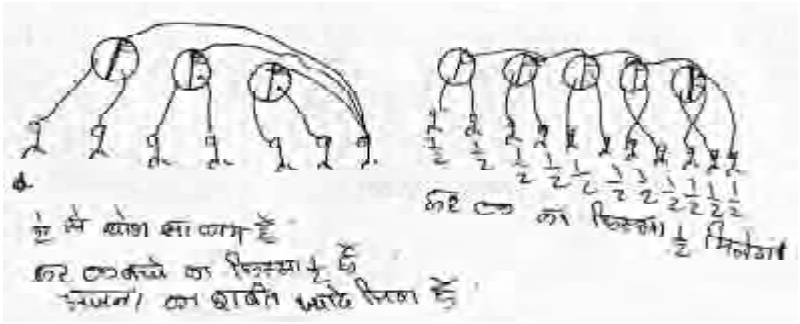 1/2 1/2 1/2 1/2 1/2 1/2 1/2 1/2 1/2 1/2 1/2
हर एक का हिस्सा 1/2 मिलेगा
1/2 से थोडा सा कम है
हर एक बच्चे का हिस्सा 1/2 है
का मिला है